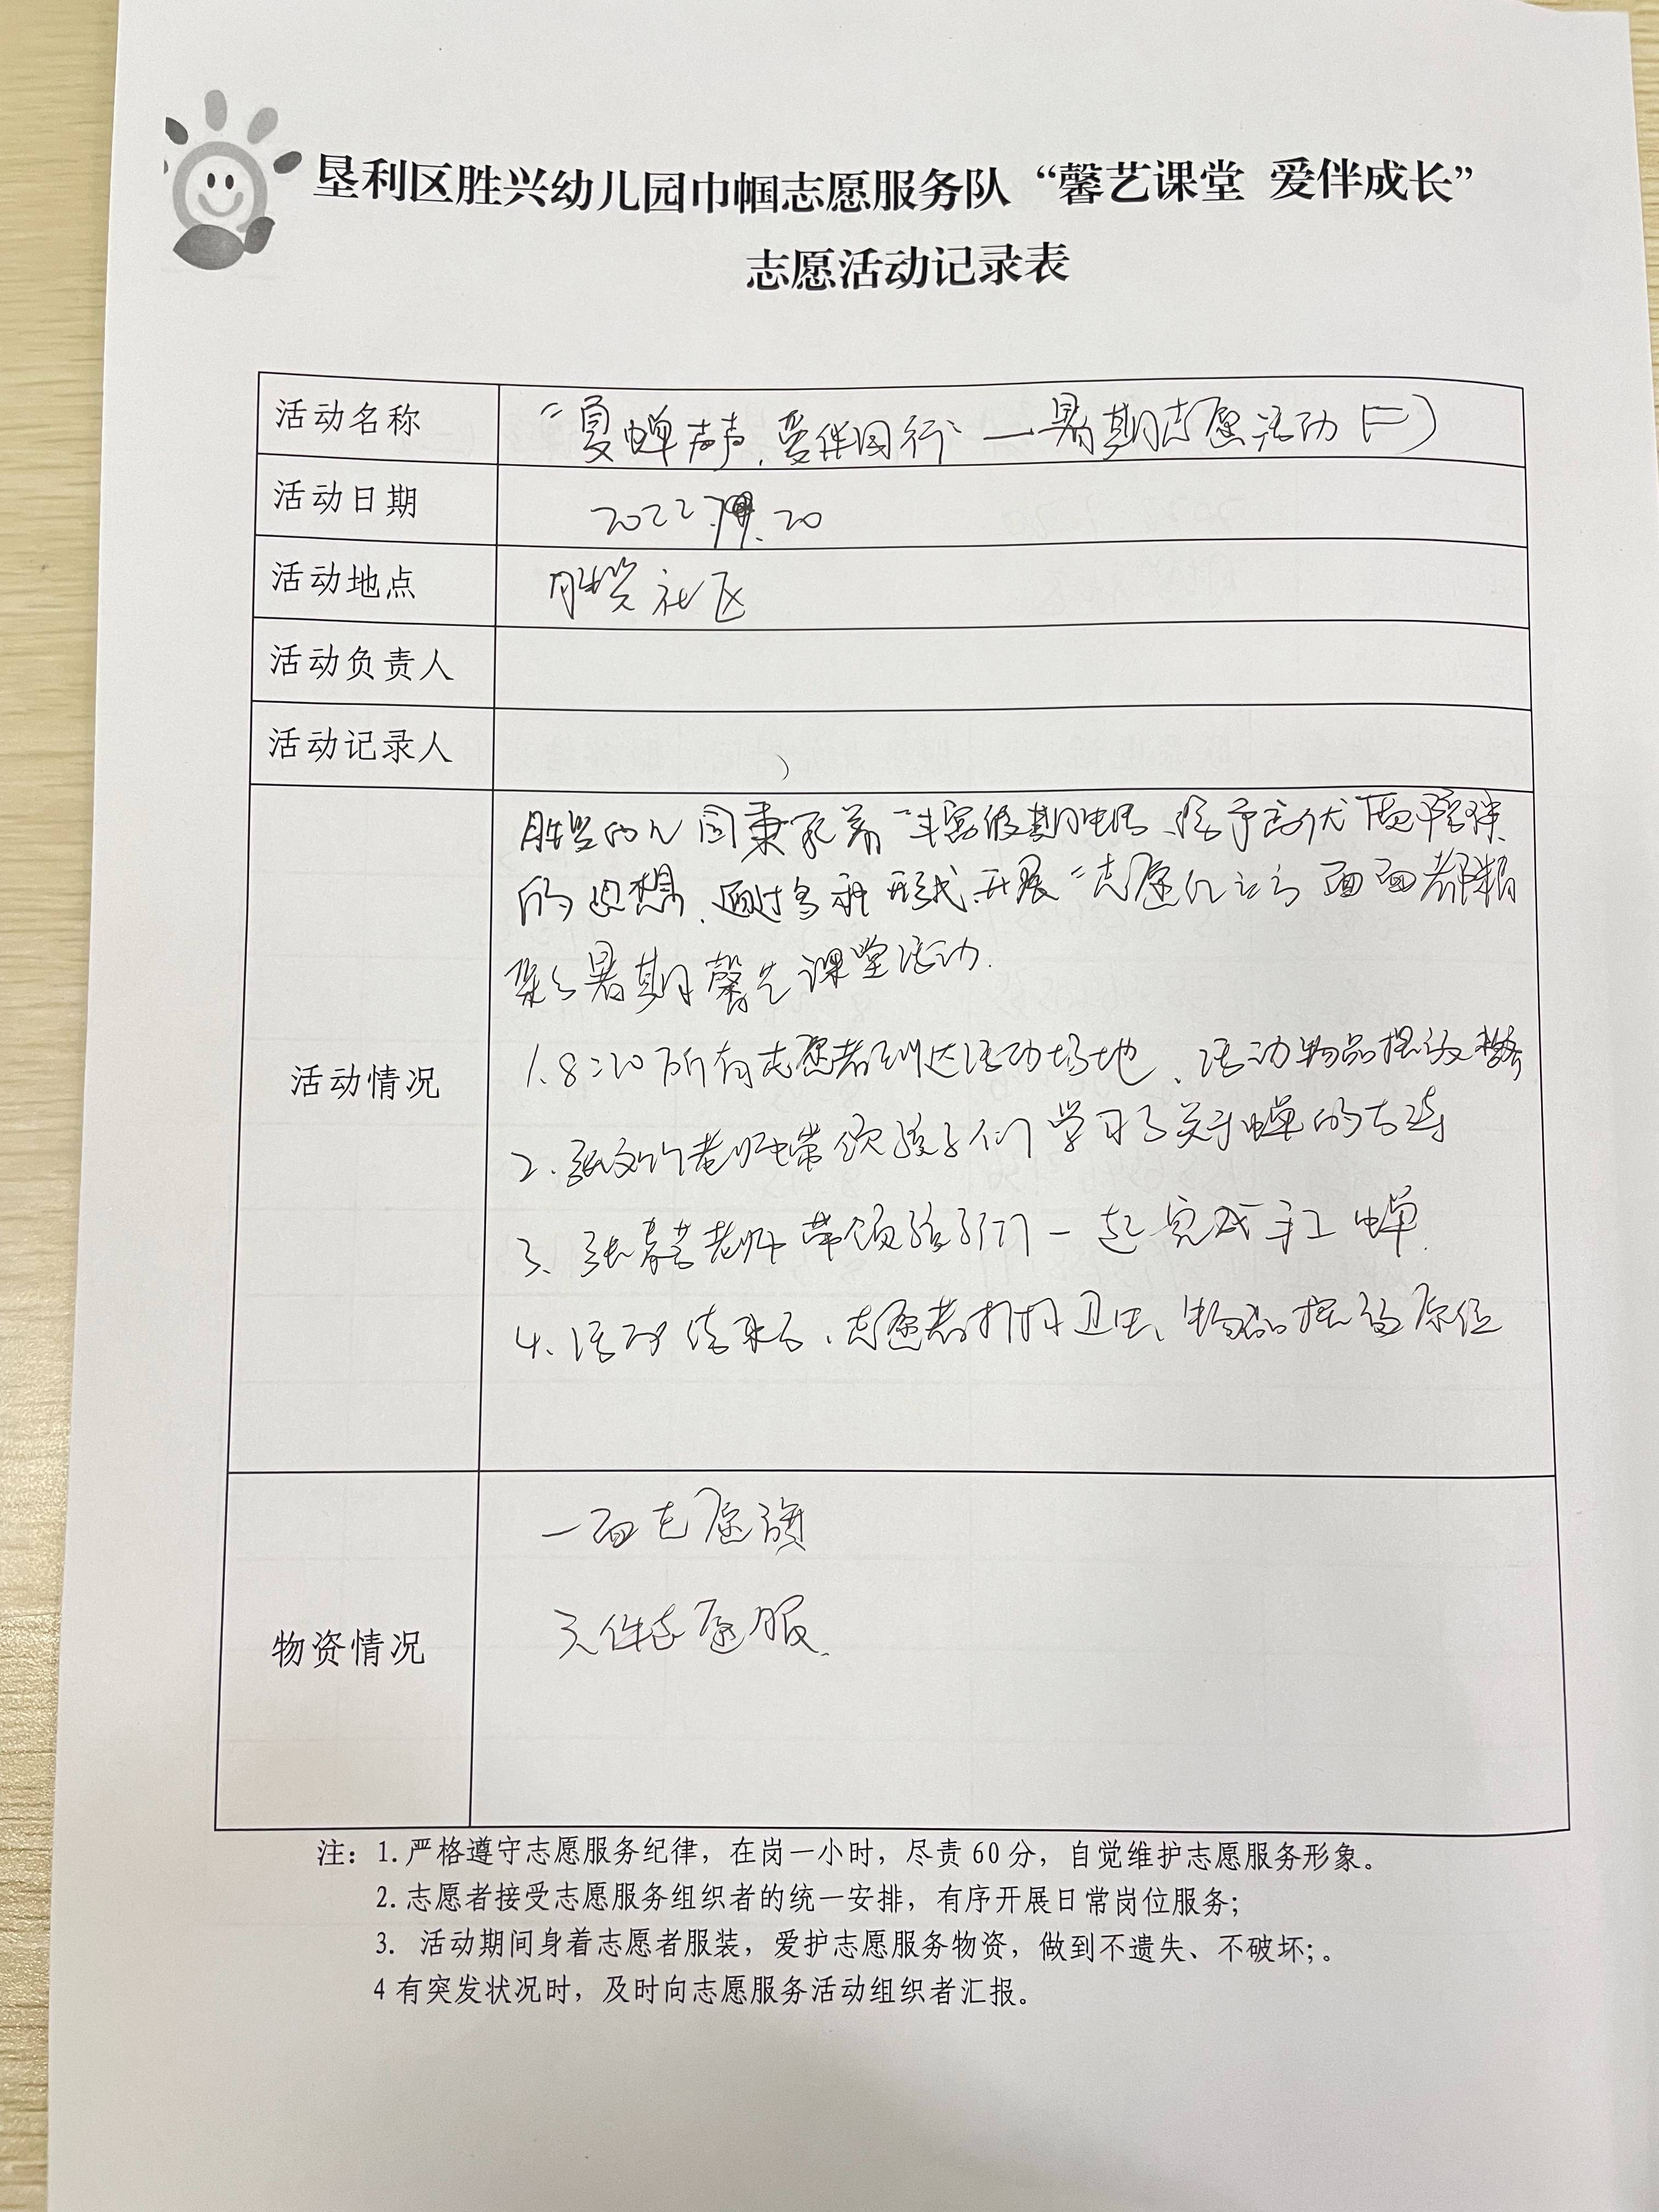 垦利区胜兴幼儿园巾帼志愿服务队“馨艺课堂 爱伴成长”
志愿活动记录表
活动名称 “夏蝉声声,爱伴同行”—暑期志愿活动(二)
活动日期 2022.7.20
活动地点 胜兴社区
活动负责人
活动记录人
胜兴幼儿园秉承着“丰富假期生活、给予高优质陪伴
的思想,通过多种形式,开展“志愿行动 面面都精
彩”暑期馨艺课堂活动.
活动情况
1.8:20所有志愿者到达活动场地、活动物品摆放整齐
2.张文竹老师带领孩子们学习了关于蝉的古诗
3、张春芸老师带领孩子们一起完成手工蝉.
4.活动结束后,志愿者打扫卫生、物品摆放原位
一面志愿旗
物资情况
三件志愿服.
注:1.严格遵守志愿服务纪律,在岗一小时,尽责60分,自觉维护志愿服务形象。
2.志愿者接受志愿服务组织者的统一安排,有序开展日常岗位服务;
3. 活动期间身着志愿者服装,爱护志愿服务物资,做到不遗失、不破坏;。
4有突发状况时,及时向志愿服务活动组织者汇报。